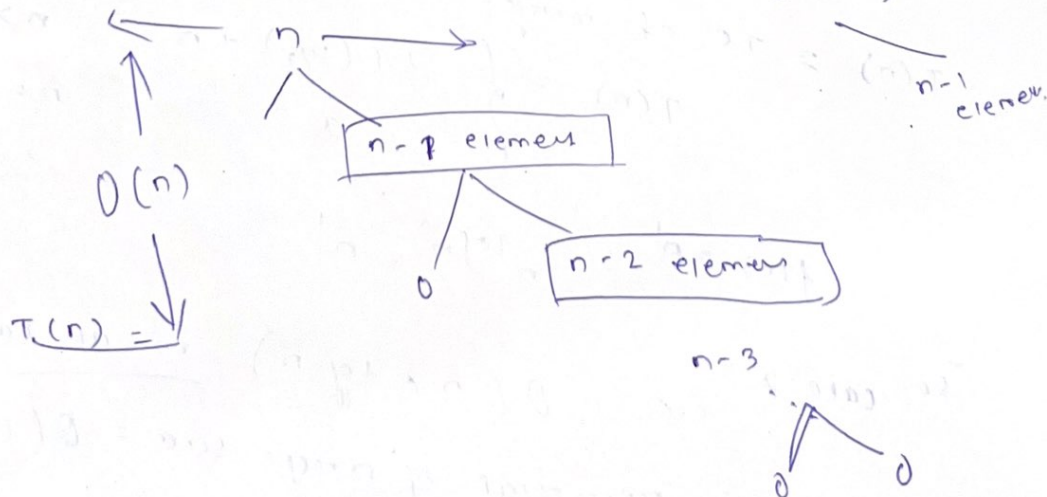 n
n-1
elemen
n-1 elemens
O(n)
n-2 elemens
0
T(n) =
n-3
0 0